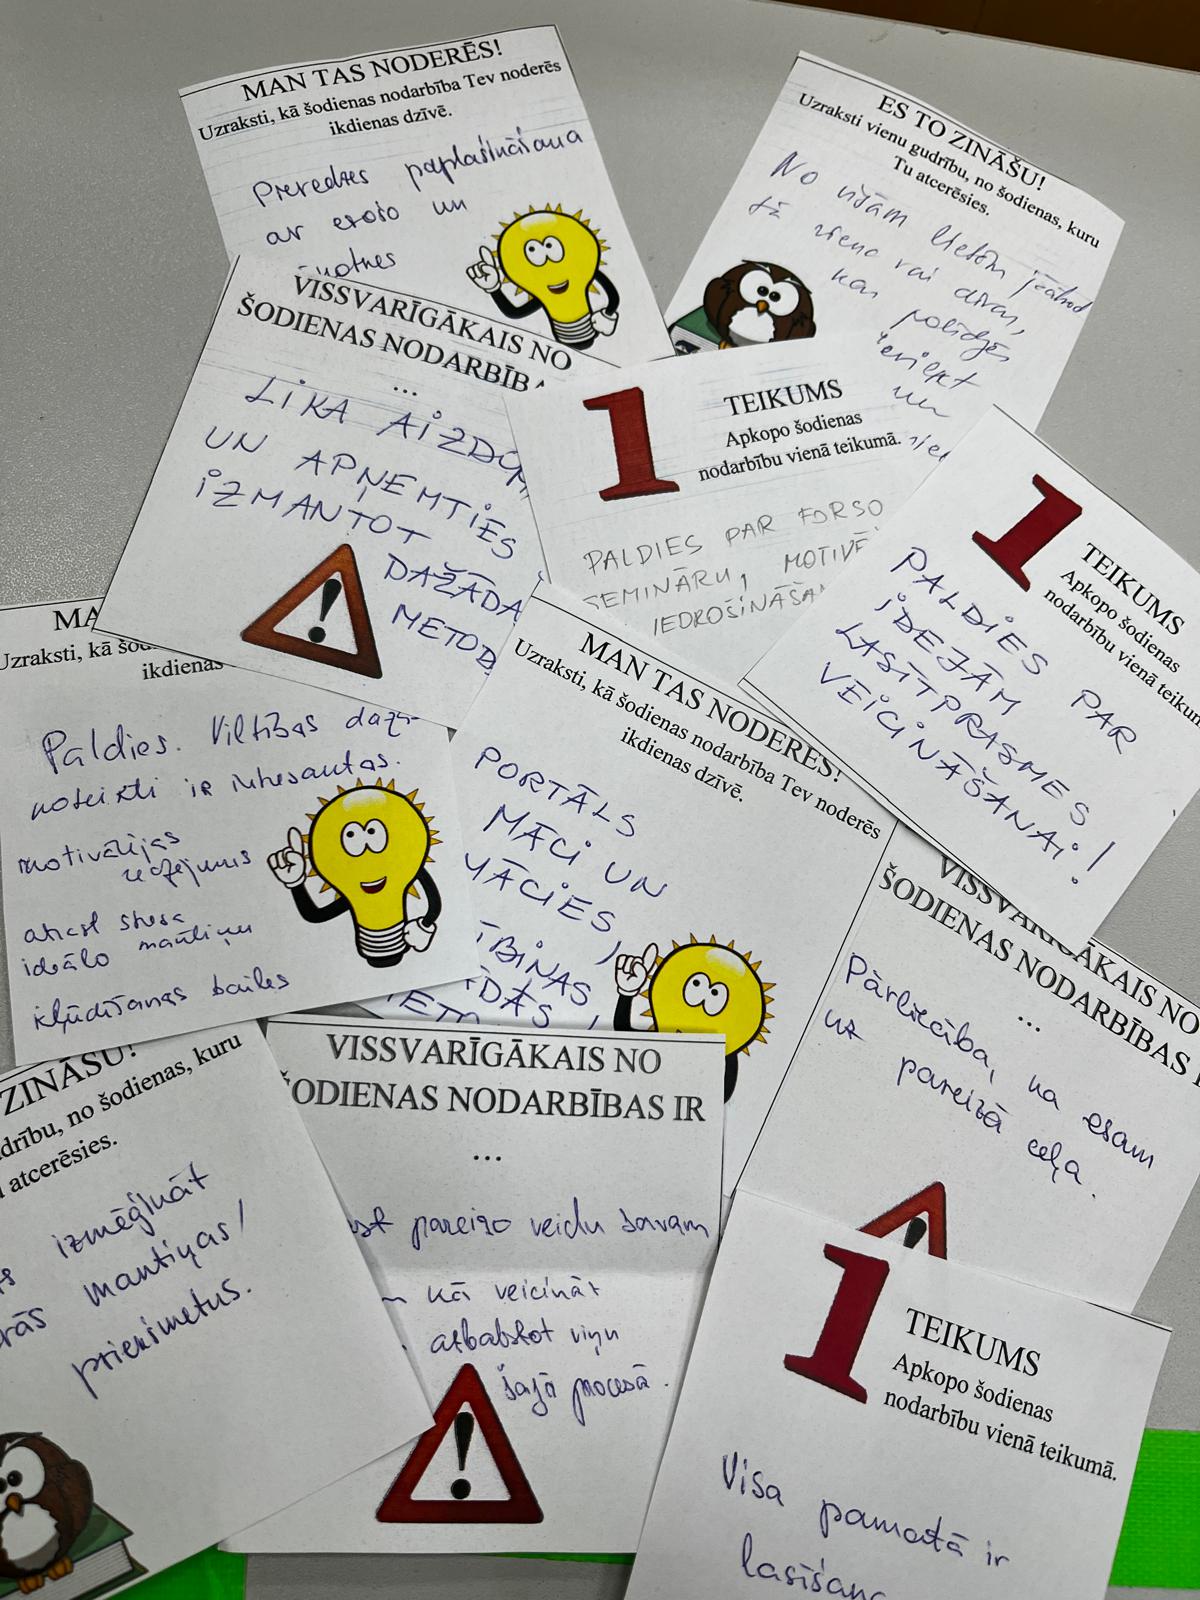 MAN TAS NODERĒS!
Uzraksti, kā šodienas nodarbība Tev noderēs
ikdienas dzīvē.
Pieredzes paplašināšana
ar un
ES TO ZINĀŠU!
Uzraksti vienu gudrību, no šodienas, kuru
Tu atcerēsies.
No lietām
vienu vai divas,
kas palīdzēs
un
VISSVARĪGĀKAIS NO
ŠODIENAS NODARBĪB
...
LIKA AIZDOM
UN APŅEMTIES
IZMANTOT
DAŽĀDA
METOD
1
TEIKUMS
Apkopo šodienas
nodarbību vienā teikumā.
PALDIES PAR FORŠO
SEMINĀRU, MOTIVĒ
IEDROŠINĀŠA
1
TEIKUMS
Apkopo šodienas
nodarbību vienā teikum
PALDIES PAR
IDEJĀM
LASĪTPRASMES
VEICINĀŠANAI!
MA
Uzraksti, kā šod
ikdienas
Paldies. Viltības daži
noteikti ir interesantas.
motivācijas
redzējums
atrast
ideālo mantiņu
kļūdīšanās bailes
MAN TAS NODERĒS!
Uzraksti, kā šodienas nodarbība Tev noderēs
ikdienas dzīvē.
PORTĀLS
MĀCI UN
MĀCIES,
ĪBIŅAS
ĀDĀS,
VISSVARĪGĀKAIS NO
ŠODIENAS NODARBĪBAS I
...
Pārliecība, ka esam
uz pareizā ceļa.
ZINĀŠU!
drību, no šodienas, kuru
atcerēsies.
izmēģināt
mantiņas/
priekšmetus.
VISSVARĪGĀKAIS NO
ŠODIENAS NODARBĪBAS IR
...
st pareizo veidu savam
kā veicināt
atbalstot viņu
šajā procesā.
1
TEIKUMS
Apkopo šodienas
nodarbību vienā teikumā.
Visa pamatā ir
lasīšana